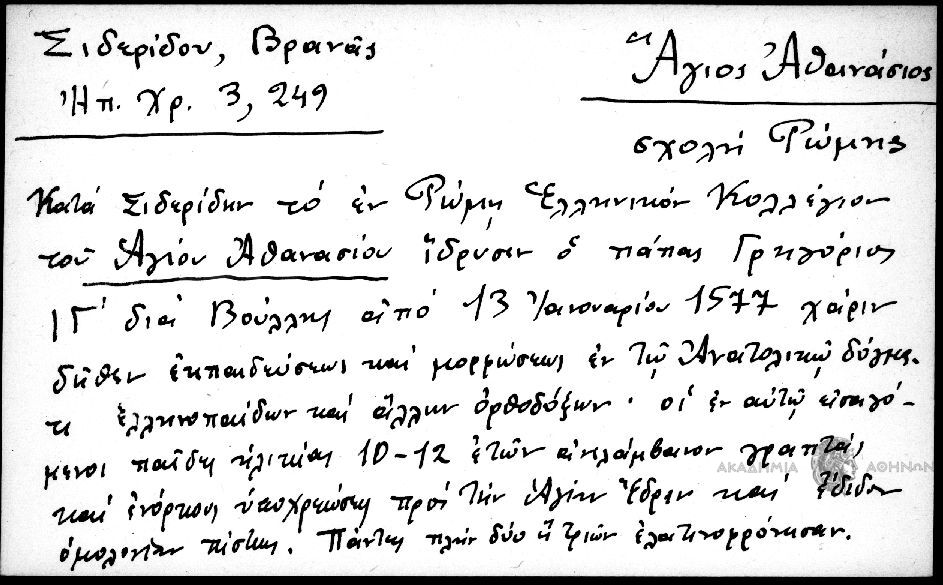 Σιδερίδου, Βρανᾶς
Ἠπ. Χρ. 3, 249
Ἅγιος Ἀθανάσιος
σχολή Ρώμης
Κατά Σιδερίδην τό ἐν Ρώμῃ Ἑλληνικόν Κολλέγιον
τοῦ Ἁγίου Ἀθανασίου ἵδρυσεν ὁ πάπας Γρηγόριος
ΙΓ΄ διά Βούλλης ἀπό 13 Ἰανουαρίου 1577 χάριν
δῆθεν ἐκπαιδεύσεως καί μορφώσεως ἐν τῷ Ἀνατολικῷ δόγμα-
τι ἑλληνοπαίδων καί ἄλλων ὀρθοδόξων· οἱ ἐν αὐτῷ εἰσαγό-
μενοι παῖδες ἡλικίας 10-12 ἐτῶν ἀνελάμβανον γραπτάς
καί ἐνόρκους ὑποχρεώσεις πρός τήν Ἁγίαν Ἕδραν καί ἔδιδον
ὁμολογίαν πίστεως. Πάντες πλήν δύο ἤ τριῶν ἐλατινοφρόνησαν.
ΑΚΑΔΗΜΙΑ ΑΘΗΝΩΝ